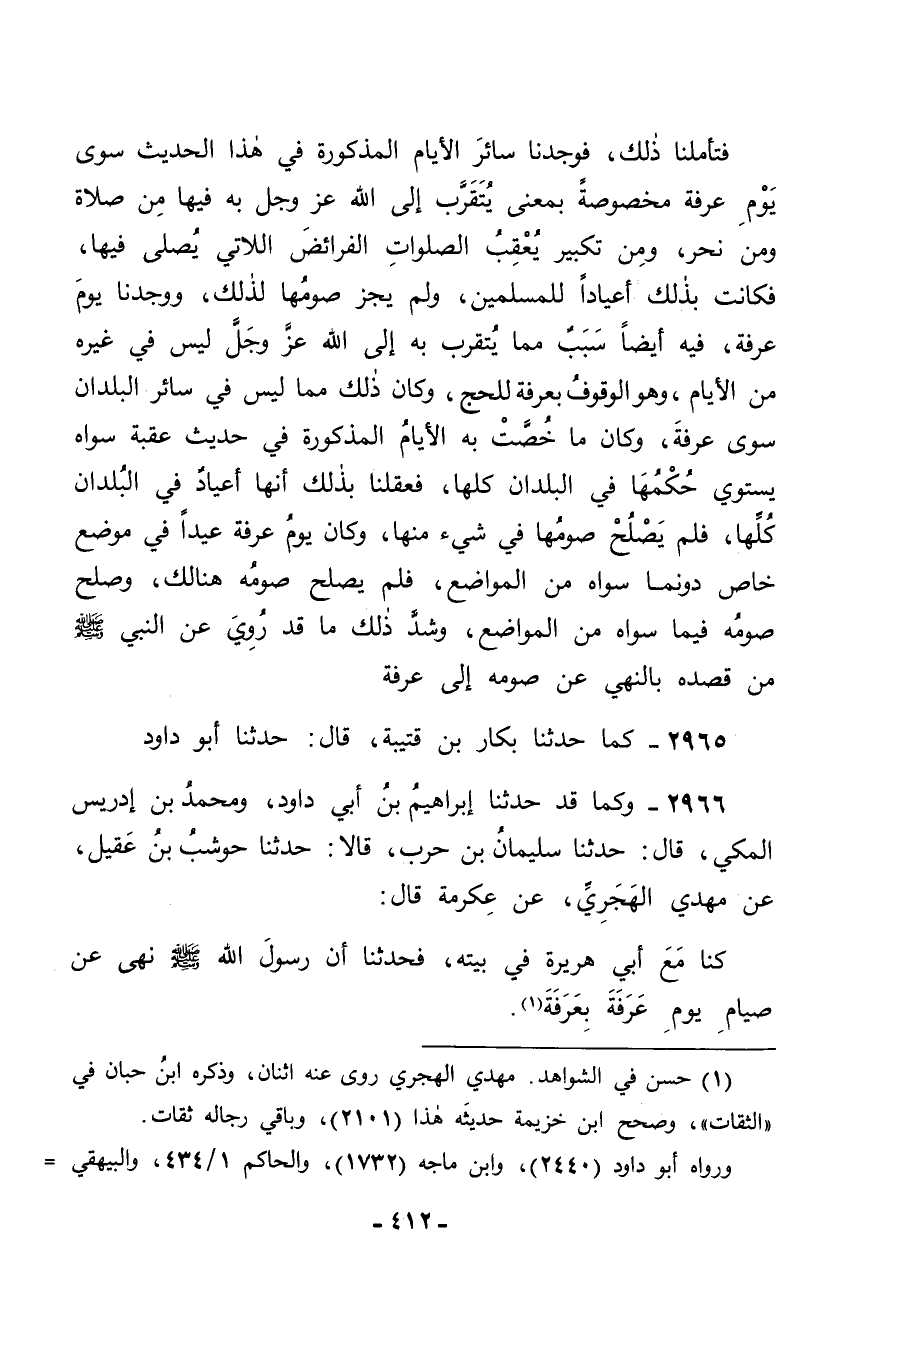 فتأملنا ذٰلك، فوجدنا سائرَ الأيام المذكورة في هٰذا الحديث سوى
يَوْمِ عرفة مخصوصةً بمعنى يُتَقَرَّب إلى الله عز وجل به فيها مِن صلاة
ومن نحر، ومِن تكبير يُعْقِبُ الصلواتِ الفرائضَ اللاتي يُصلى فيها،
فكانت بذٰلك أعياداً للمسلمين، ولم يجز صومُها لذٰلك، ووجدنا يومَ
عرفة، فيه أيضاً سَبَبٌ مما يُتقرب به إلى الله عزَّ وجَلَّ ليس في غيره
من الأيام، وهو الوقوفُ بعرفة للحج، وكان ذٰلك مما ليس في سائر البلدان
سوى عرفةَ، وكان ما خُصَّتْ به الأيامُ المذكورة في حديث عقبة سواه
يستوي حُكْمُهَا في البلدان كلها، فعقلنا بذٰلك أنها أعيادٌ في البُلدان
كُلِّها، فلم يَصْلُحْ صومُها في شيء منها، وكان يومُ عرفة عيداً في موضع
خاص دونمـا سواه من المواضع، فلم يصلح صومُه هنالك، وصلح
صومُه فيما سواه من المواضع، وشدَّ ذٰلك ما قد رُوِيَ عن النبي ﷺ
من قصده بالنهي عن صومه إلى عرفة
٢٩٦٥ ـ كما حدثنا بكار بن قتيبة، قال: حدثنا أبو داود
٢٩٦٦ ـ وكما قد حدثنا إبراهيمُ بنُ أبي داود، ومحمدُ بن إدريس
المكي، قال: حدثنا سليمانُ بن حرب، قالا: حدثنا حوشبُ بنُ عَقيل،
عن مهدي الهَجَرِيِّ، عن عِكرمة قال:
كنا مَعَ أبي هريرة في بيته، فحدثنا أن رسولَ الله ﷺ نهى عن
صيامِ يومِ عَرَفَةَ بِعَرَفَةَ(١).
(١) حسن في الشواهد. مهدي الهجري روى عنه اثنان، وذكره ابنُ حبان في
«الثقات»، وصحح ابن خزيمة حديثَه هٰذا (٢١٠١)، وباقي رجاله ثقات.
ورواه أبو داود (٢٤٤٠)، وابن ماجه (١٧٣٢)، والحاكم ٤٣٤/١، والبيهقي =
ـ ٤١٢ ـ